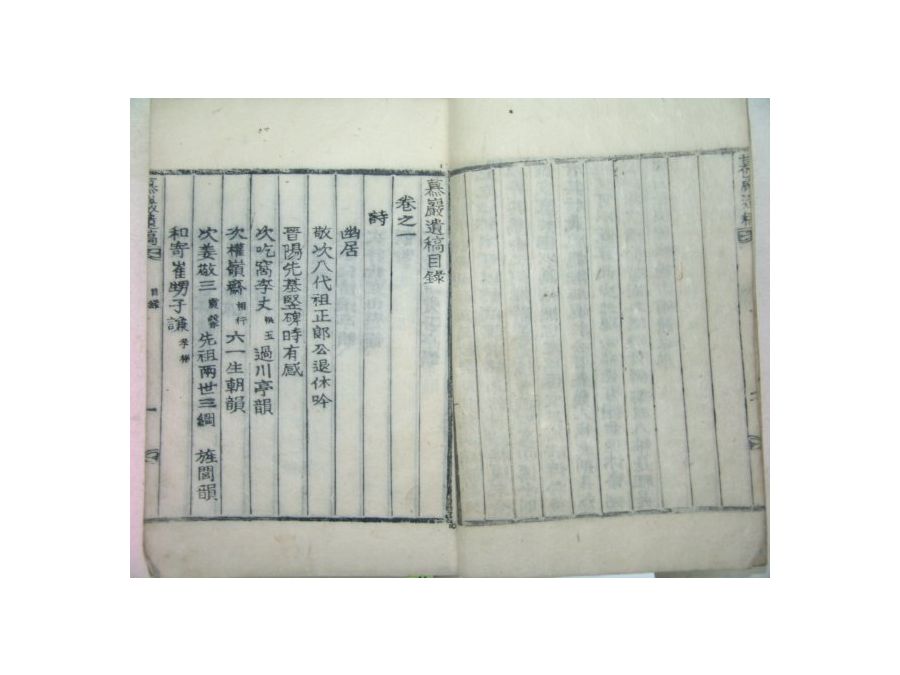 慕巖遺稿目錄
卷之一
詩
幽居
敬次八代祖正郎公退休吟
晋陽先基竪碑時有感
次吃窩李丈 過川亭韻
次權嶺齋相行六一生朝韻
次姜敬三 先祖兩世三綱 旌閭韻
和寄崔甥子
慕巖遺稿
目錄
一